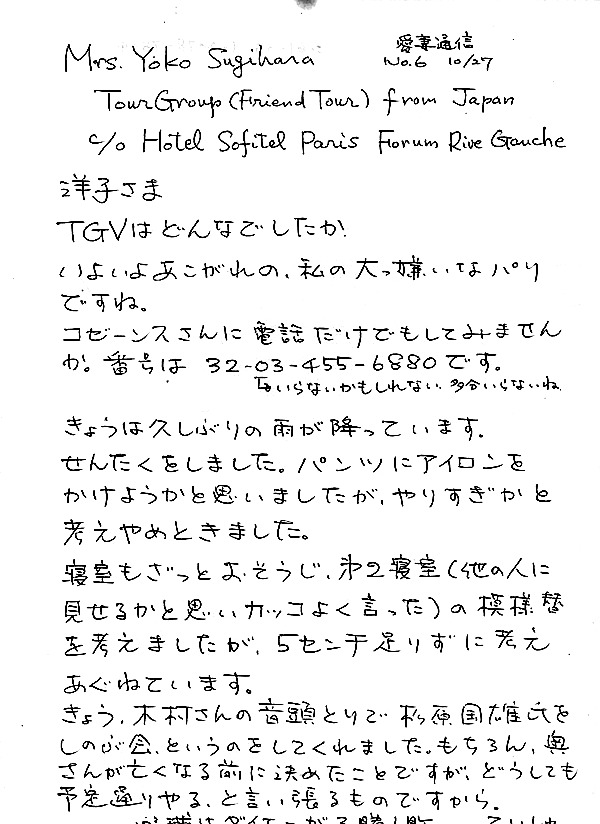 愛妻通信
No.6 10/27
Mrs. Yoko Sugihara
Tour Group (Friend Tour) from Japan
c/o Hotel Sofitel Paris Forum Rive Gauche
洋子さま
TGVはどんなでしたか
いよいよあこがれの、私の大っ嫌いなパリ
ですね。
コゼーンスさんに電話だけでもしてみません
か。番号は 32-03-455-6880です。
いらないかもしれない 多分いらないね
きょうは久しぶりの雨が降っています。
せんたくをしました。パンツにアイロンを
かけようかと思いましたが、やりすぎかと
考えやめときました。
寝室もざっとおそうじ、第2寝室(他の人に
見せるかと思いカッコよく言った)の模様替
を考えましたが、5センチ足りずに考え
あぐねています。
きょう、木村さんの音頭とりで杉原国雄氏を
しのぶ会、というのをしてくれました。もちろん、奥
さんが亡くなる前に決めたことですが、どうしても
予定通りやる、と言い張るものですから。